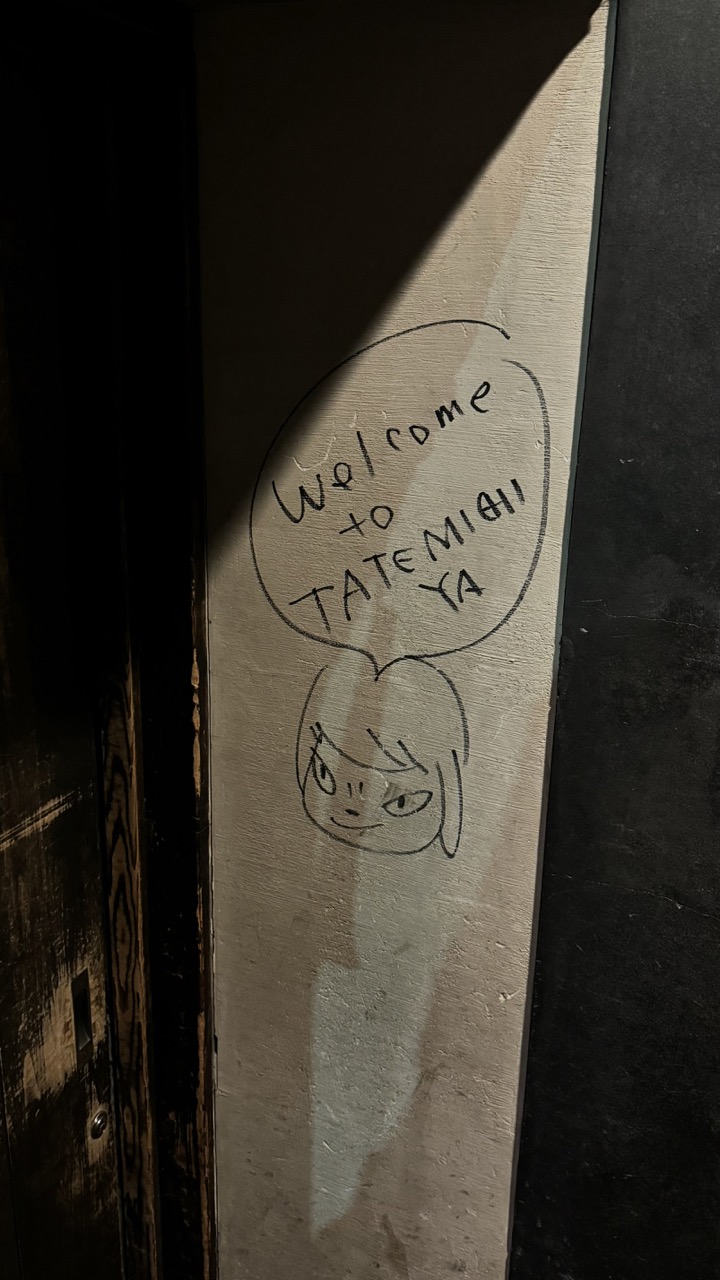 Welcome
to
TATEMICHI
YA